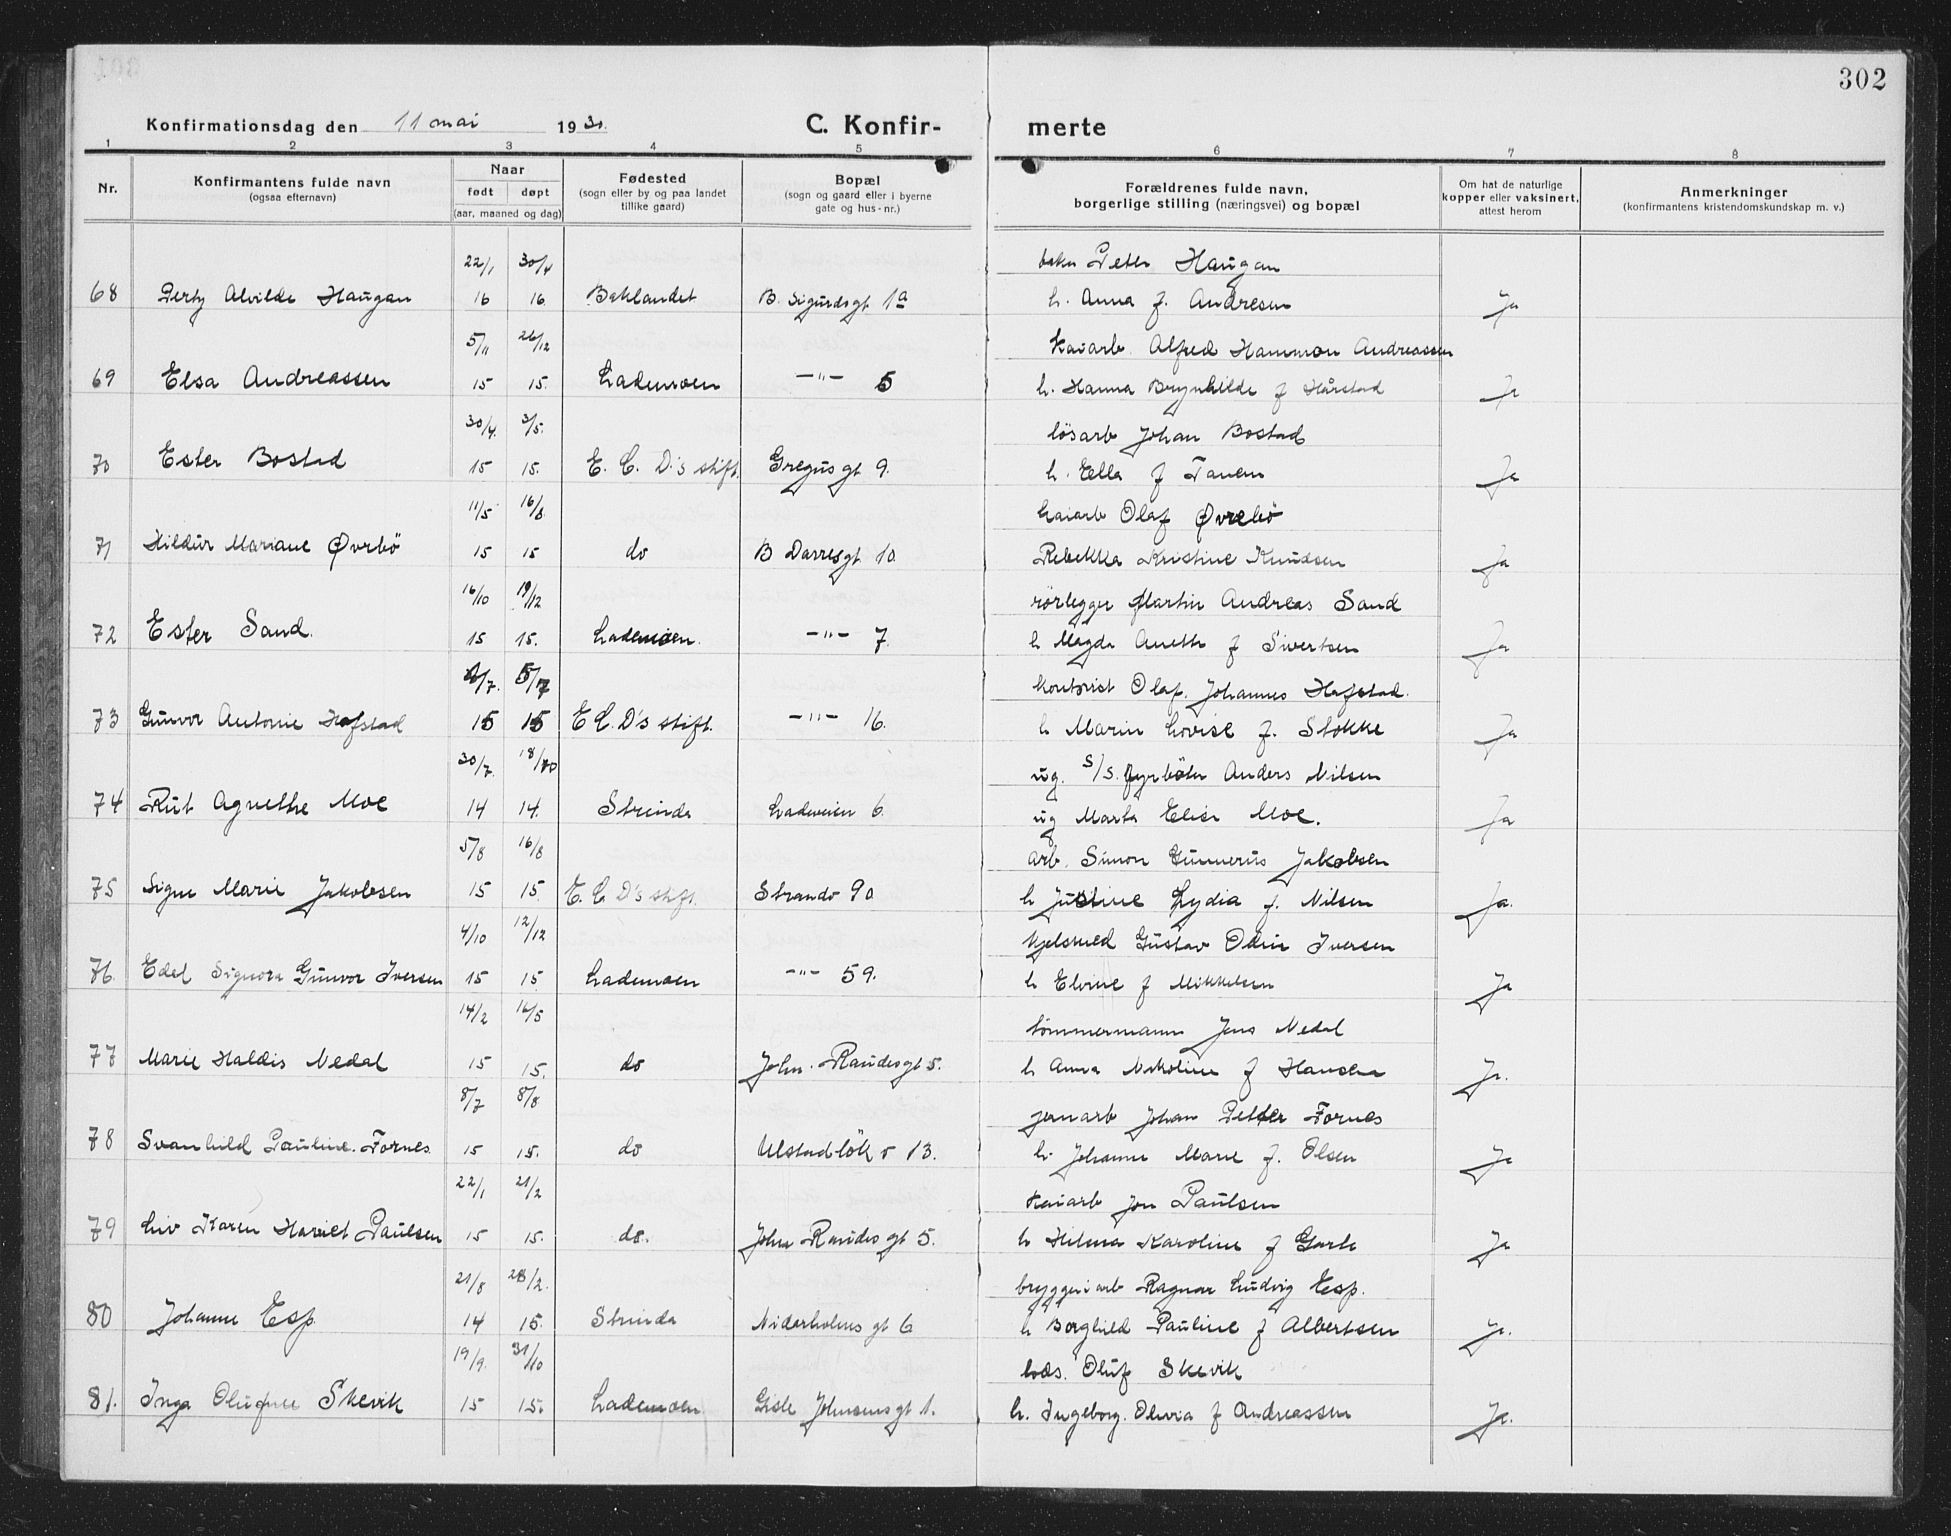 302
Konfirmationsdag den 11 mai 1930. C. Konfir- merte
1 2 3 4 5 6 7 8
Nr. Konfirmantens fulde navn (ogsaa efternavn) Naar født døpt (aar, maaned og dag) Fødested (sogn eller by og paa landet tillike gaard) Bopæl (sogn og gaard eller i byerne gate og hus-nr.) Forældrenes fulde navn, borgerlige stilling (næringsvei) og bopæl Om hat de naturlige kopper eller vaksinert, attest herom Anmerkninger (konfirmantens kristendomskundskap m. v.)
22/1 30/4 Peter Haugan
68 Alvilde Haugan 16 16 Baklandet B. Sigurdsgt 1a h. Anna f. Andresen Ja
5/11 26/12 kaiarb. Alfred Hammon Andreassen
69 Elsa Andreassen 15 15. Lademoen —"— 5 h. Hanna Brynhilde f Hårstad Ja
30/4. 3/5. løsarb Johan Bostad
70 Ester Bostad 15 15. E. C. D.'s stift. Gregusgt 9. h. Ella f Tanem Ja
11/5 16/8 kaiarb Olaf Øvrebö
71 Hildur Mariane Øvrbö 15 15 do B Darresgt 10. Rebekka Kristine Knudsen Ja
16/10 19/12 rörlegger Martin Andreas Sand
72 Ester Sand. 15 15. Lademoen. —"— 7. h Magda Anette f Sivertsen Ja
/7. 5/7 kontorist Olaf. Johannes Hofstad.
73 Gunvor Antonie Hofstad 15 15 E C. D's stift. —"— 16. h Marin Lovise f. Stokke Ja
30/7. 18/10 ug. S/S. fyrböter Anders Nilsen
74 Rut Agnethe Moe 14 14. Strinda Ladeveien 6. ug Marta Elise Moe. Ja
5/8 16/8 arb. Simon Gunnerius Jakobsen
75 Signe Marie Jakobsen 15 15. E. C D's stift. Strandv 90 h Justine Lydia f. Nilsen Ja.
4/10 12/12 kjelsmed Gustav Odin Iversen
76. Edel Signora Gunvor Iversen 15 15 Lademoen —"— 59. h Elvine f Mikkelsen Ja
14/2 16/5 tömmermann Jens Nedal
77 Marie Haldis Nedal 15 15. do John. Raudesgt 5. h Anna Nikoline f Hansen Ja.
8/7 8/8 jernarb Johan Petter Fornes
78 Svanhild Pauline. Fornes. 15 15. do Ulstadlök v 13. h. Johanne Marie f. Olsen Ja
22/1 21/2 kaiarb Jon Paulsen
79 Liv Karen Harriet Paulsen 15 15. do. John Raudes gt 5. h Hilma Karoline f Garli Ja
21/8 28/2. bryggeriarb Ragnar Ludvig Esp.
80 Johanne Esp. 14 15. Strinda Nidarholms gt 6 h Borghild Pauline f Albertsen Ja.
19/9. 31/10 Oluf Skevik
81. Inga Olufine Skevik 15 15. Lademoen Gisle Johnsens gt 1. h. Ingeborg. Olivia f Andreassen Ja.